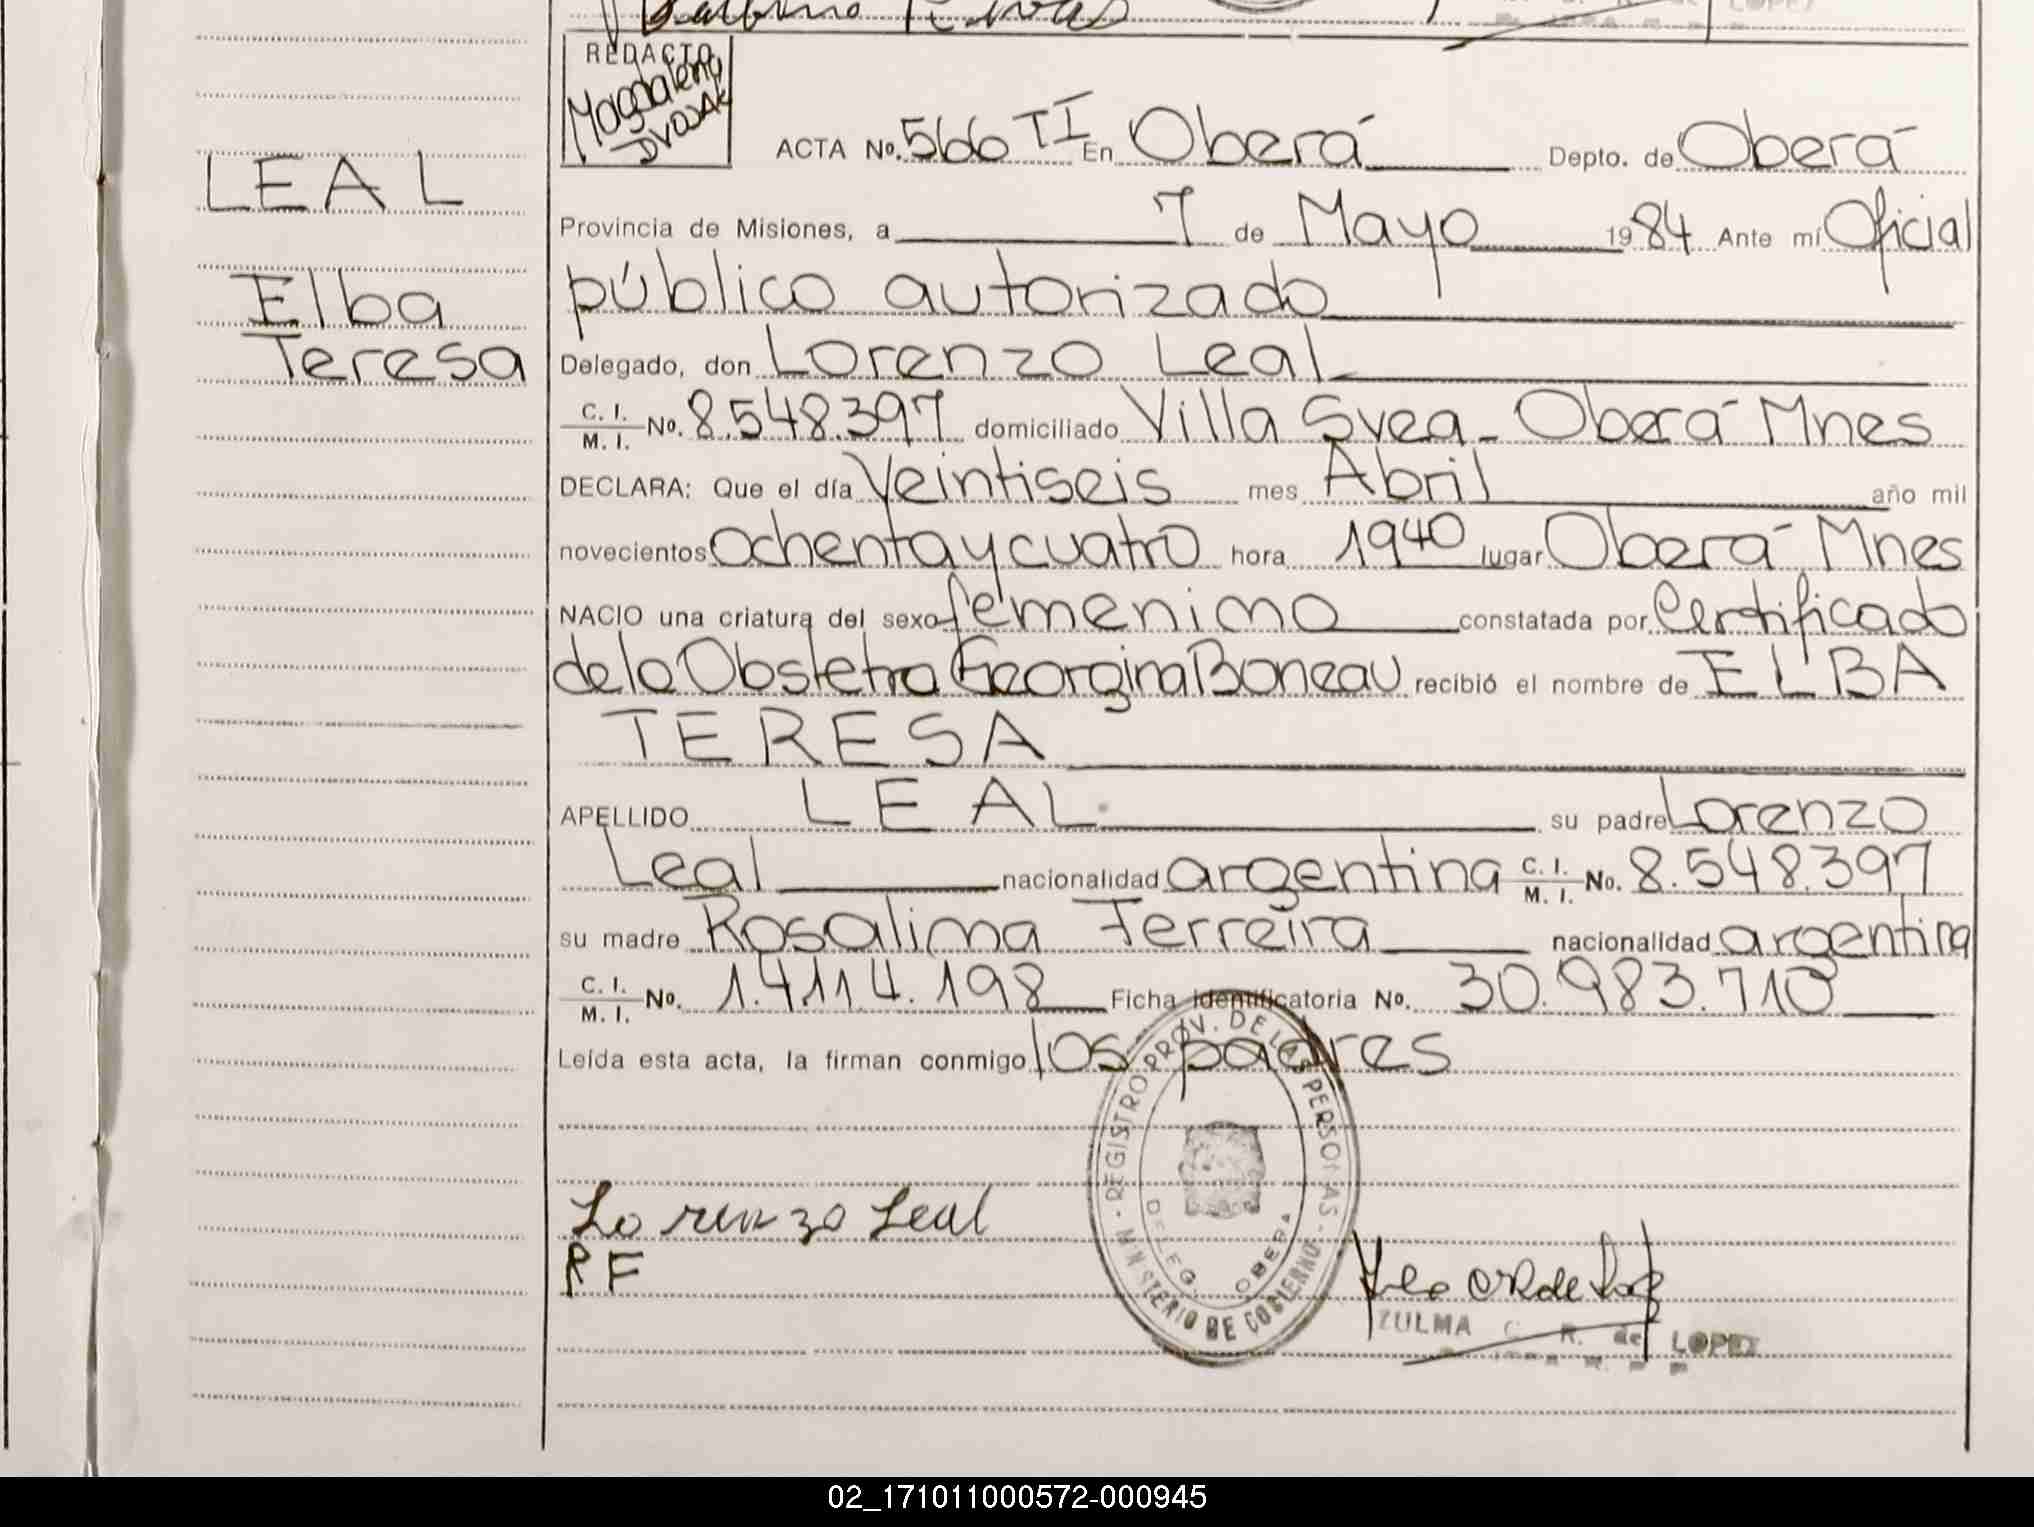 REDACTO
Magdalena
DVOJAK
ACTA No. 566 TI En Oberá Depto. de Oberá
LEAL
Provincia de Misiones, a 7 de Mayo 1984 Ante mí Oficial
Elba
público autorizado
Teresa
Delegado, don Lorenzo Leal
C. I. M. I. No. 8.548.397 domiciliado Villa Svea - Oberá Mnes
DECLARA: Que el día Veintiseis mes Abril año mil
novecientos Ochenta y cuatro hora 1940 lugar Oberá Mnes
NACIO una criatura del sexo femenino constatada por Certificado
de la Obstetra Georgina Boneau recibió el nombre de ELBA
TERESA
APELLIDO LEAL su padre Lorenzo
Leal nacionalidad argentina C. I. M. I. No. 8.548.397
su madre Rosalina Ferreira nacionalidad argentina
C. I. M. I. No. 14.114.198 Ficha identificatoria No. 30.983.710
Leída esta acta, la firman conmigo los padres
REGISTRO PROV. DE LAS PERSONAS - MINISTERIO DE GOBIERNO
DELEG. OBERA
Lorenzo Leal
RF
ZULMA C. R. de LOPEZ
02_171011000572-000945